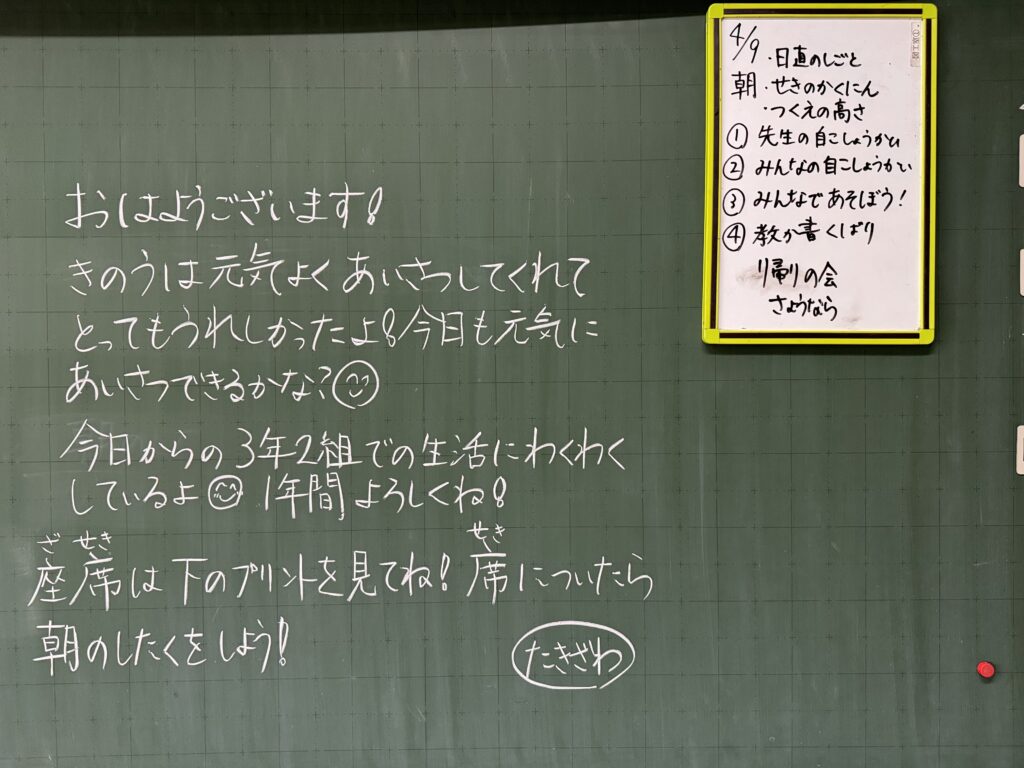 おはようございます!
きのうは元気よくあいさつしてくれて
とってもうれしかったよ!今日も元気に
あいさつできるかな?
今日からの3年2組での生活にわくわく
しているよ 1年間よろしくね!
ざ せき せき
座席は下のプリントを見てね!席についたら
朝のしたくをしよう!
たきざわ
4/9
・日直のしごと
朝・せきのかくにん
・つくえの高さ
① 先生の自こしょうかい
② みんなの自こしょうかい
③ みんなであそぼう!
④ 教か書くばり
帰りの会
さようなら